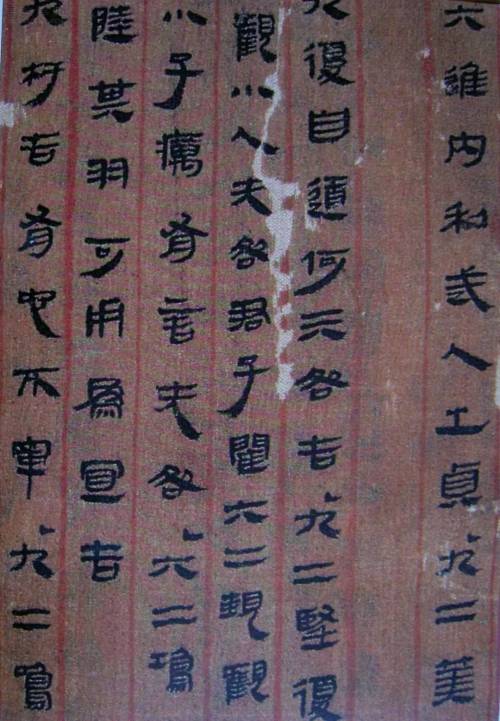 六進內利武人之貞九二
九復自道何亓咎吉九二堅復
觀小人无咎君子閵六二觀
小子癘有言无咎六二鳿
陸其羽可用為宜吉
九杅吉有它不寧九二鳴